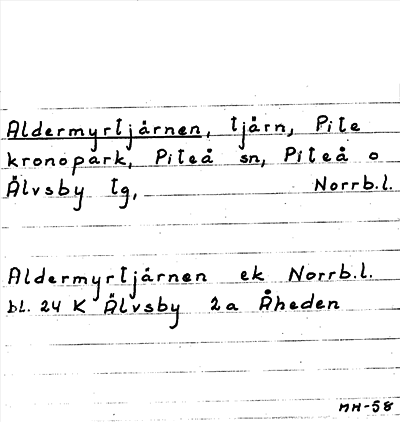 Aldermyrtjärnen, tjärn, Pite
kronopark, Piteå sn, Piteå o
Älvsby tg, Norrb.l.
Aldermyrtjärnen ek Norrb.l.
bl. 24 K Älvsby 2a Åheden
MH-58